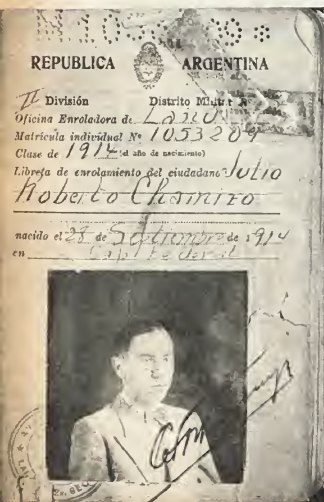 REPUBLICA ARGENTINA
II División Distrito Militar Nº
Oficina Enroladora de Lanús
Matrícula individual Nº 1053209
Clase de 1914 (el año de nacimiento)
Libreta de enrolamiento del ciudadano Julio
Roberto Chamizo
nacido el 28 de Setiembre de 1914
en Cap. Federal